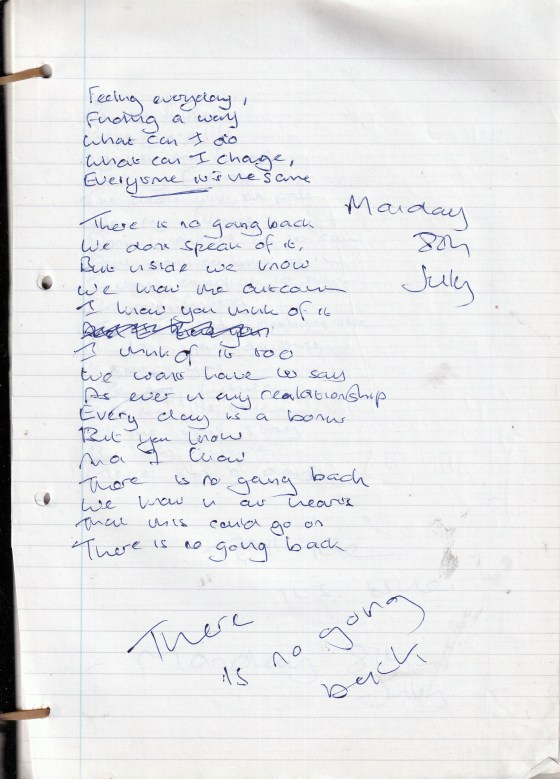 Feeling everyday,
Finding a way
What can I do
What can I change,
Everytime it's the same
There is no going back
We dont speak of it,
But inside we know
We know the outcome
I know you think of it
I think of it too
We wont have to say
As ever in any realationship
Every day is a bonus
But you know
And I know
There is no going back
We know in our hearts
That this could go on
There is no going back
Monday
8th
July
There
is no going
back